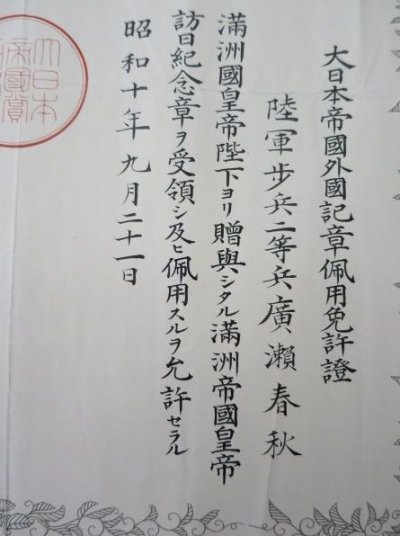 大日本帝國外國記章佩用免許證
陸軍步兵二等兵廣瀨春秋
滿洲國皇帝陛下ヨリ贈與シタル滿洲帝國皇帝
訪日紀念章ヲ受領シ及ヒ佩用スルヲ允許セラル
昭和十年九月二十一日
大日本
帝國賞